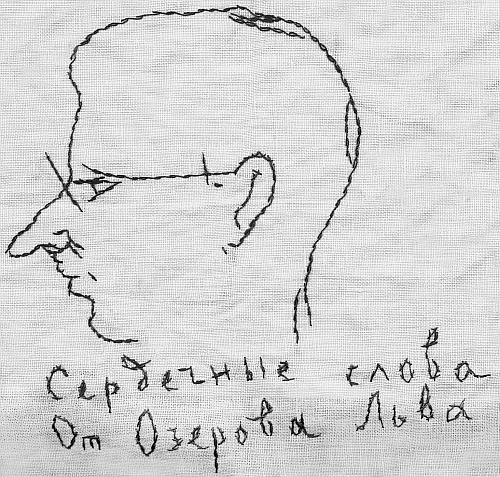 Сердечные слова
От Озерова Льва